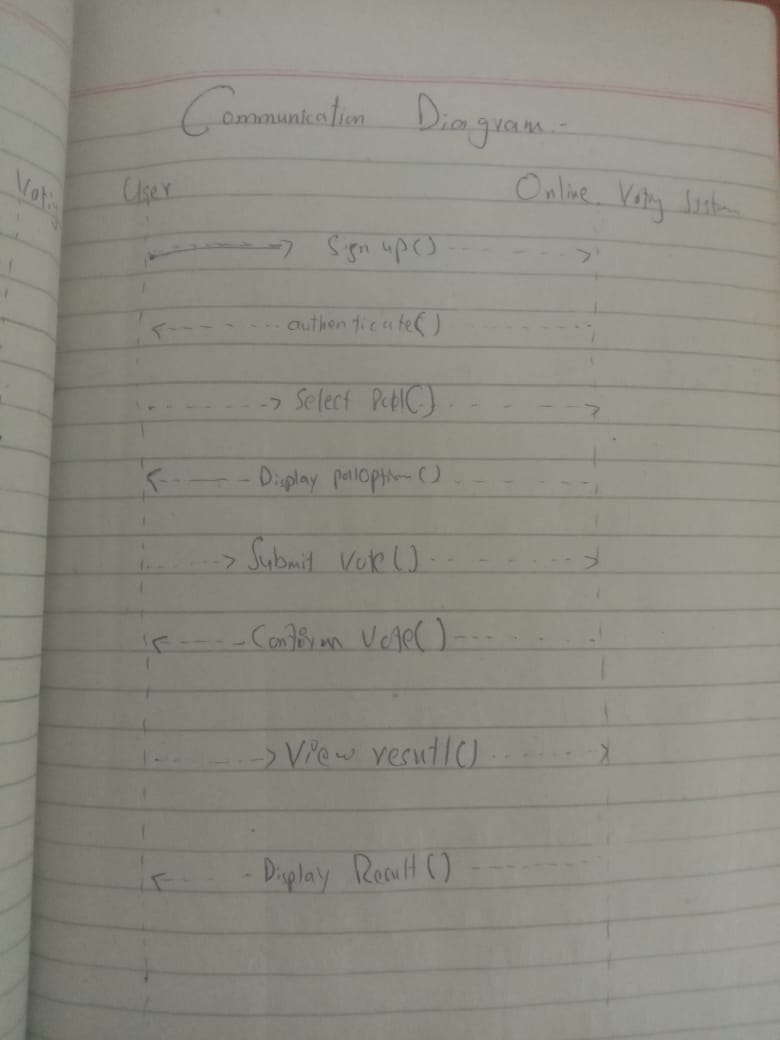 Communication Diagram:-
User Online Voting System
Sign up()
authenticate()
Select Poll()
Display pollOption()
Submit Vote()
Conform Vote()
View resutl()
Display Result()